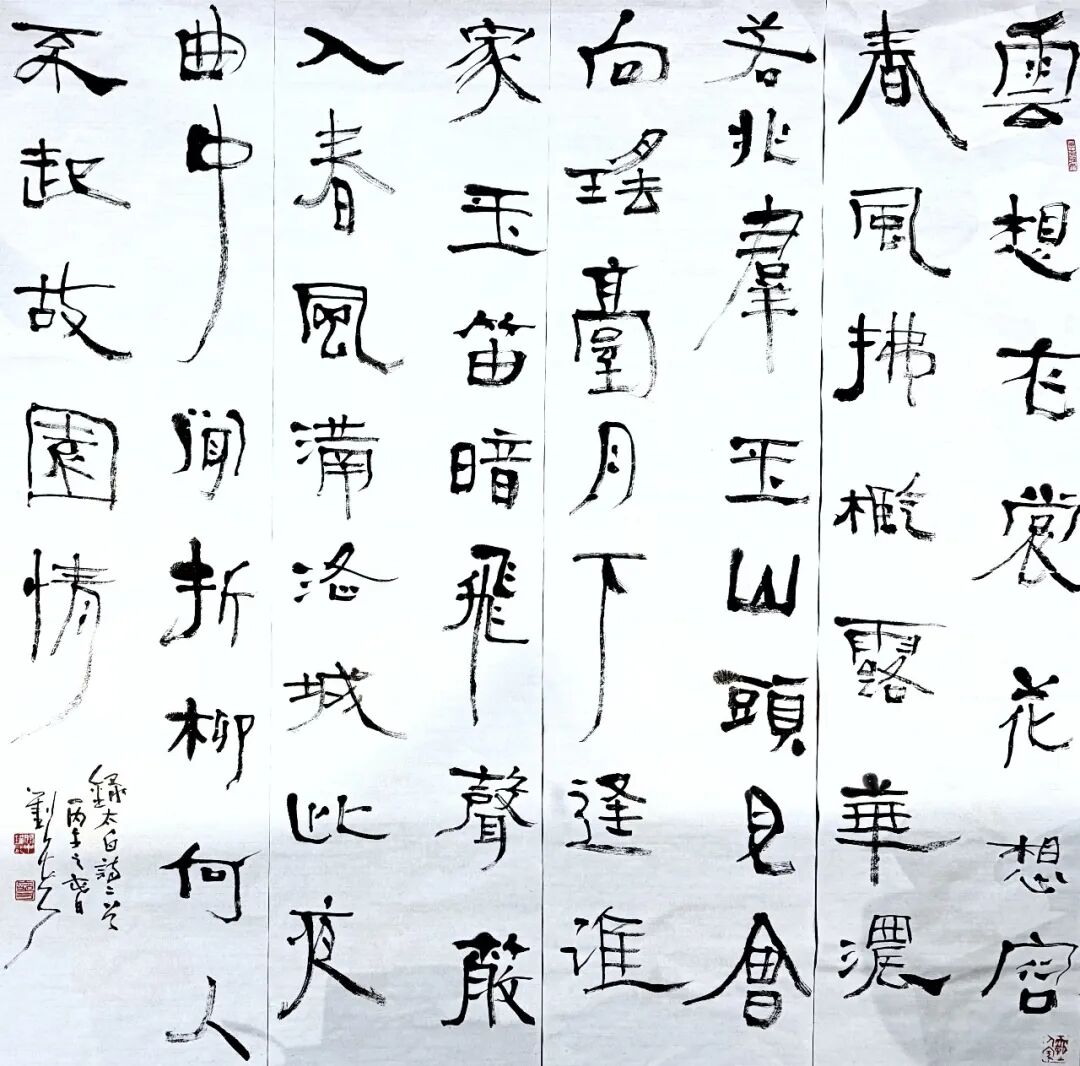 雲想衣裳花想容
春風拂檻露華濃
若非羣玉山頭見會
向瑤臺月下逢誰
家玉笛暗飛聲散
入春風滿洛城此夜
曲中聞折柳何人
不起故園情
錄太白詩二首
丙午之春
劉